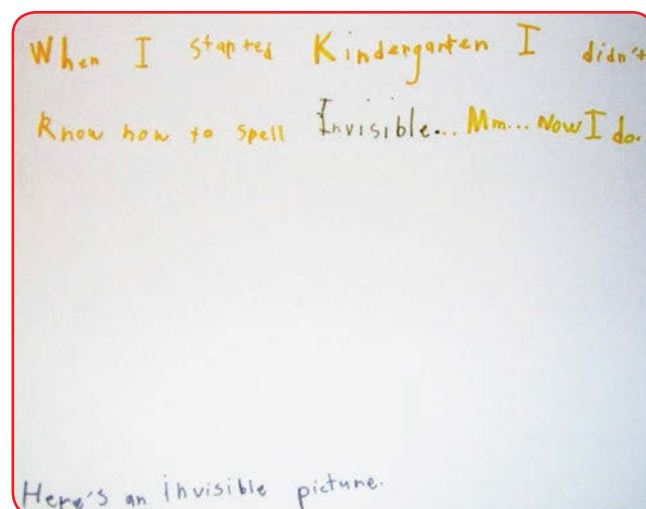 When I started Kindergarten I didn't
Know how to spell Invisible... Mm... Now I do.
Here's an invisible picture.